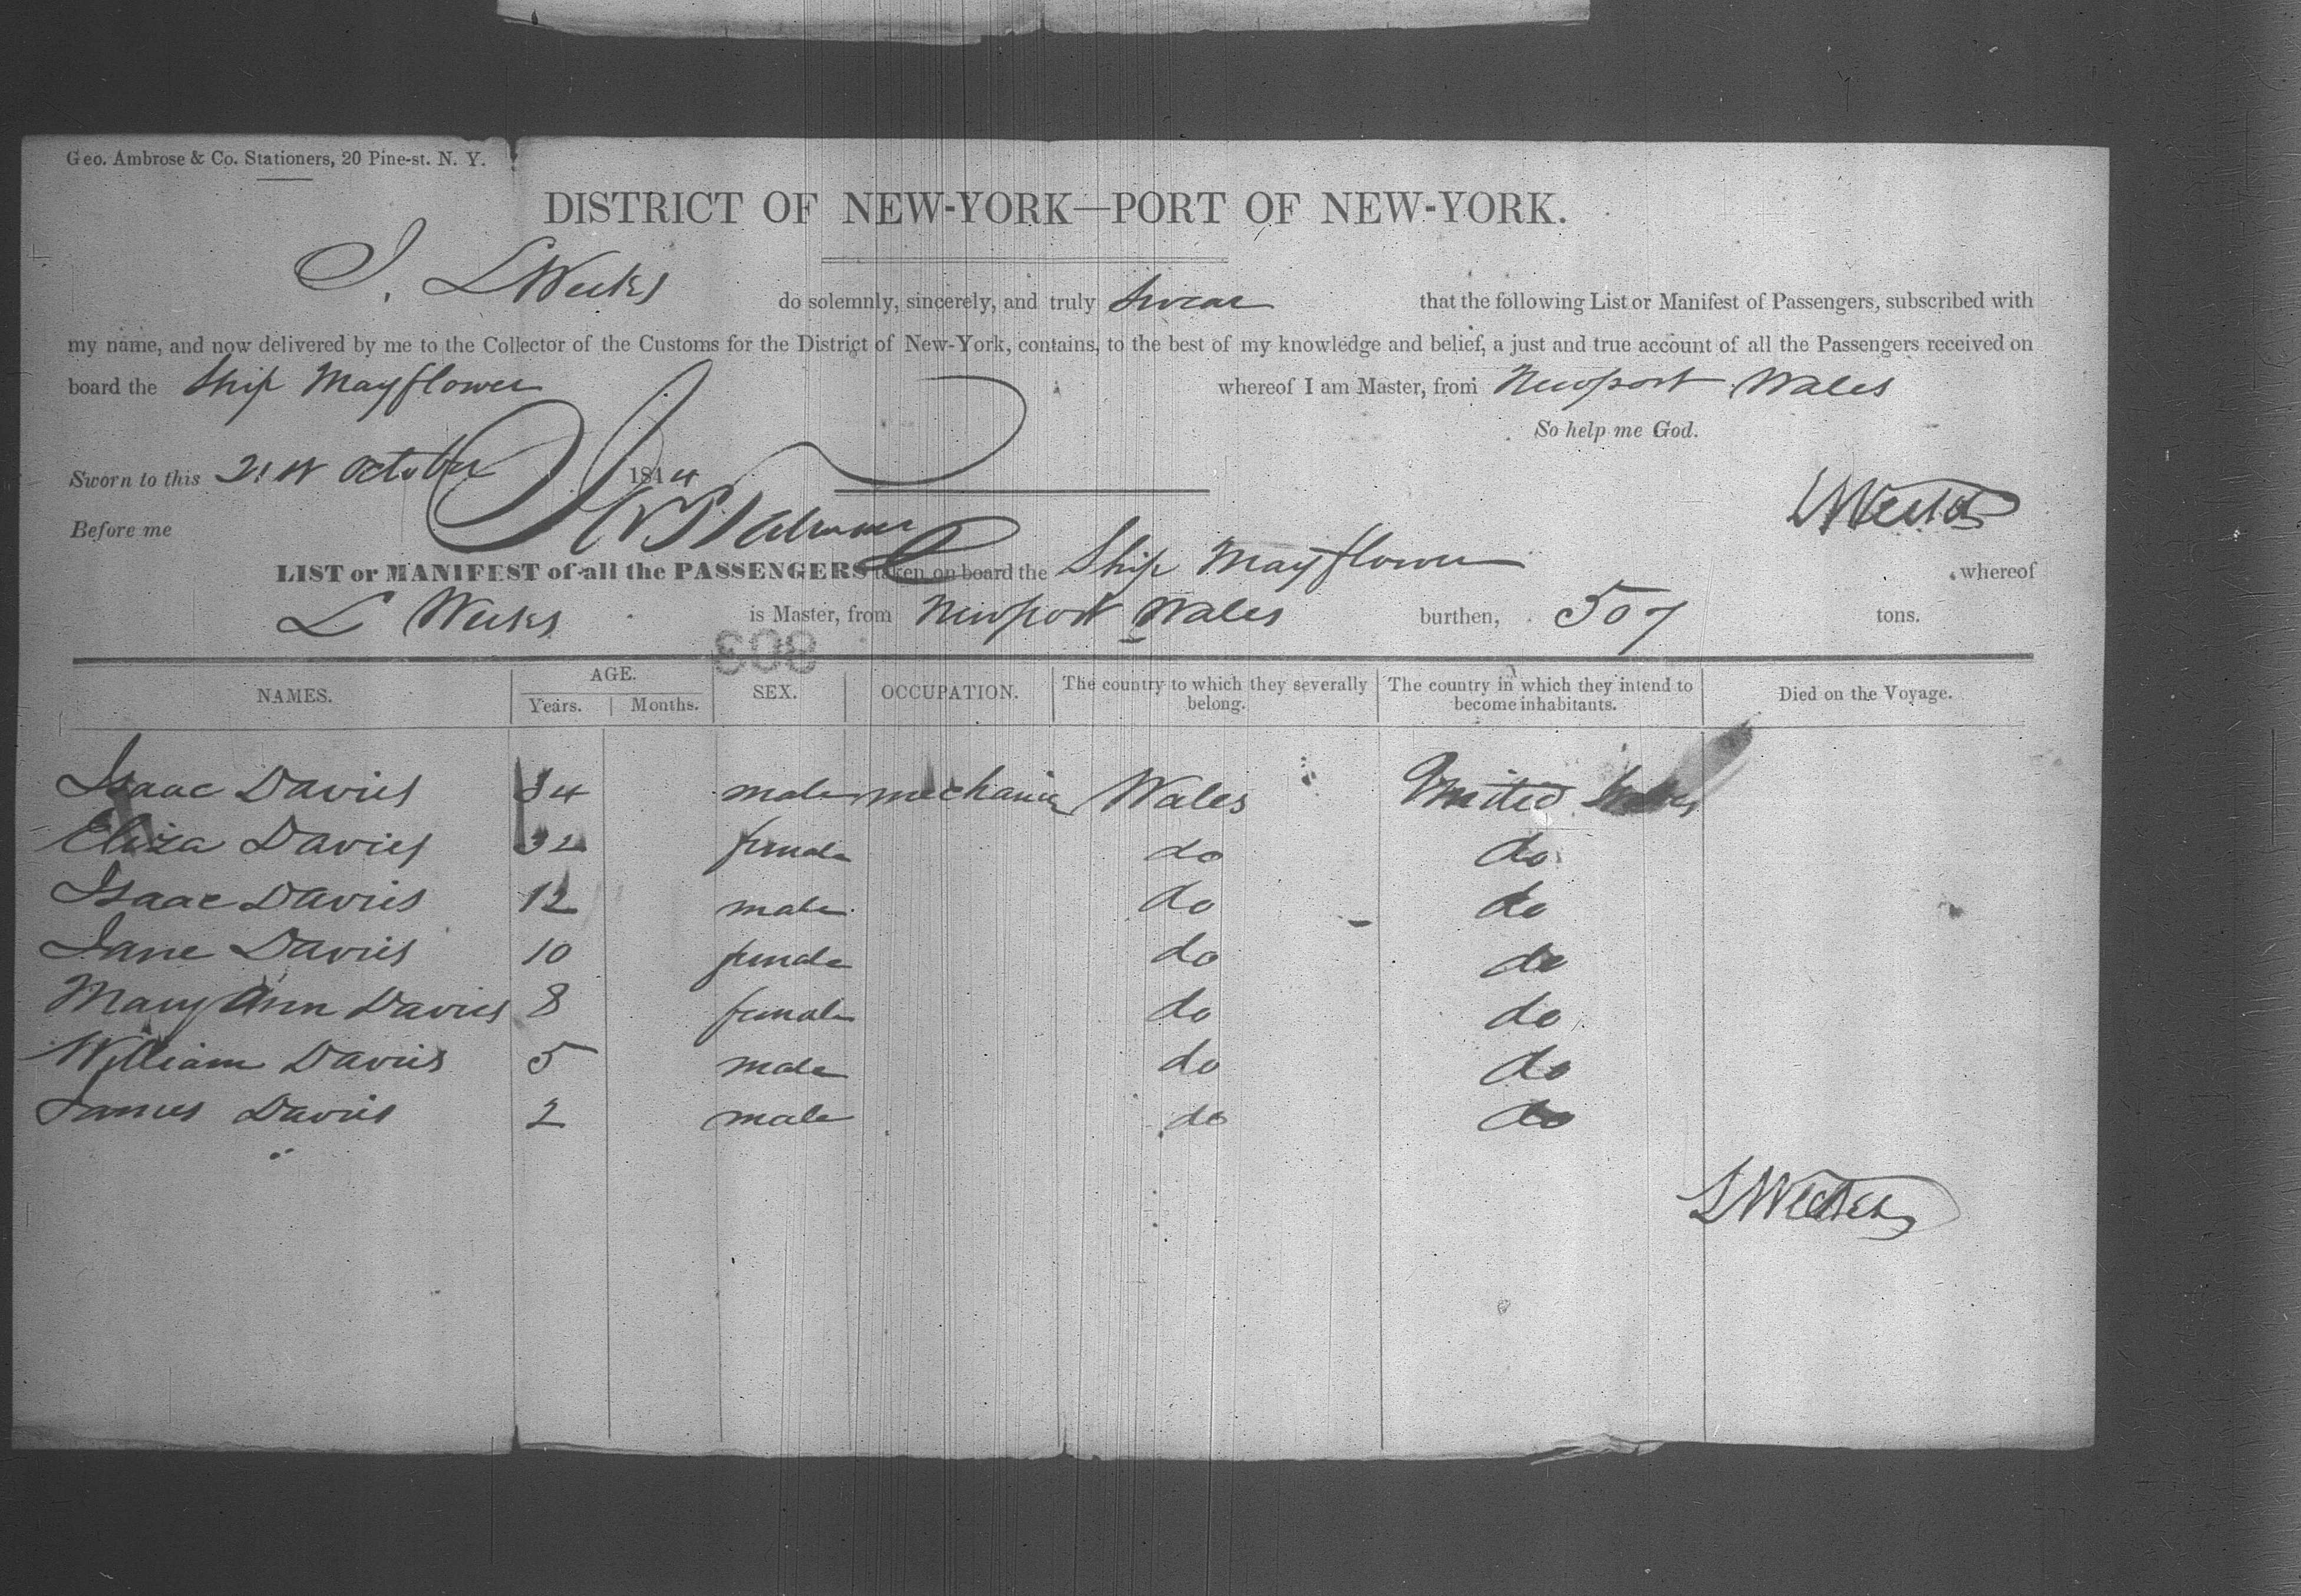 Geo. Ambrose & Co. Stationers, 20 Pine-st. N. Y.
DISTRICT OF NEW-YORK—PORT OF NEW-YORK.
I, L Weeks do solemnly, sincerely, and truly swear that the following List or Manifest of Passengers, subscribed with
my name, and now delivered by me to the Collector of the Customs for the District of New-York, contains, to the best of my knowledge and belief, a just and true account of all the Passengers received on
board the Ship Mayflower whereof I am Master, from Newport Wales
So help me God.
Sworn to this 21st October 1844
L Weeks
Before me
LIST or MANIFEST of all the PASSENGERS taken on board the Ship Mayflower whereof
L Weeks is Master, from Newport Wales burthen, 507 tons.
803
NAMES. AGE. Years. Months. SEX. OCCUPATION. The country to which they severally belong. The country in which they intend to become inhabitants. Died on the Voyage.
Isaac Davies 34 male mechanic Wales United States
Eliza Davies 32 female do do
Isaac Davies 12 male do do
Jane Davies 10 female do do
Mary Ann Davies 8 female do do
William Davies 5 male do do
James Davies 2 male do do
L Weeks